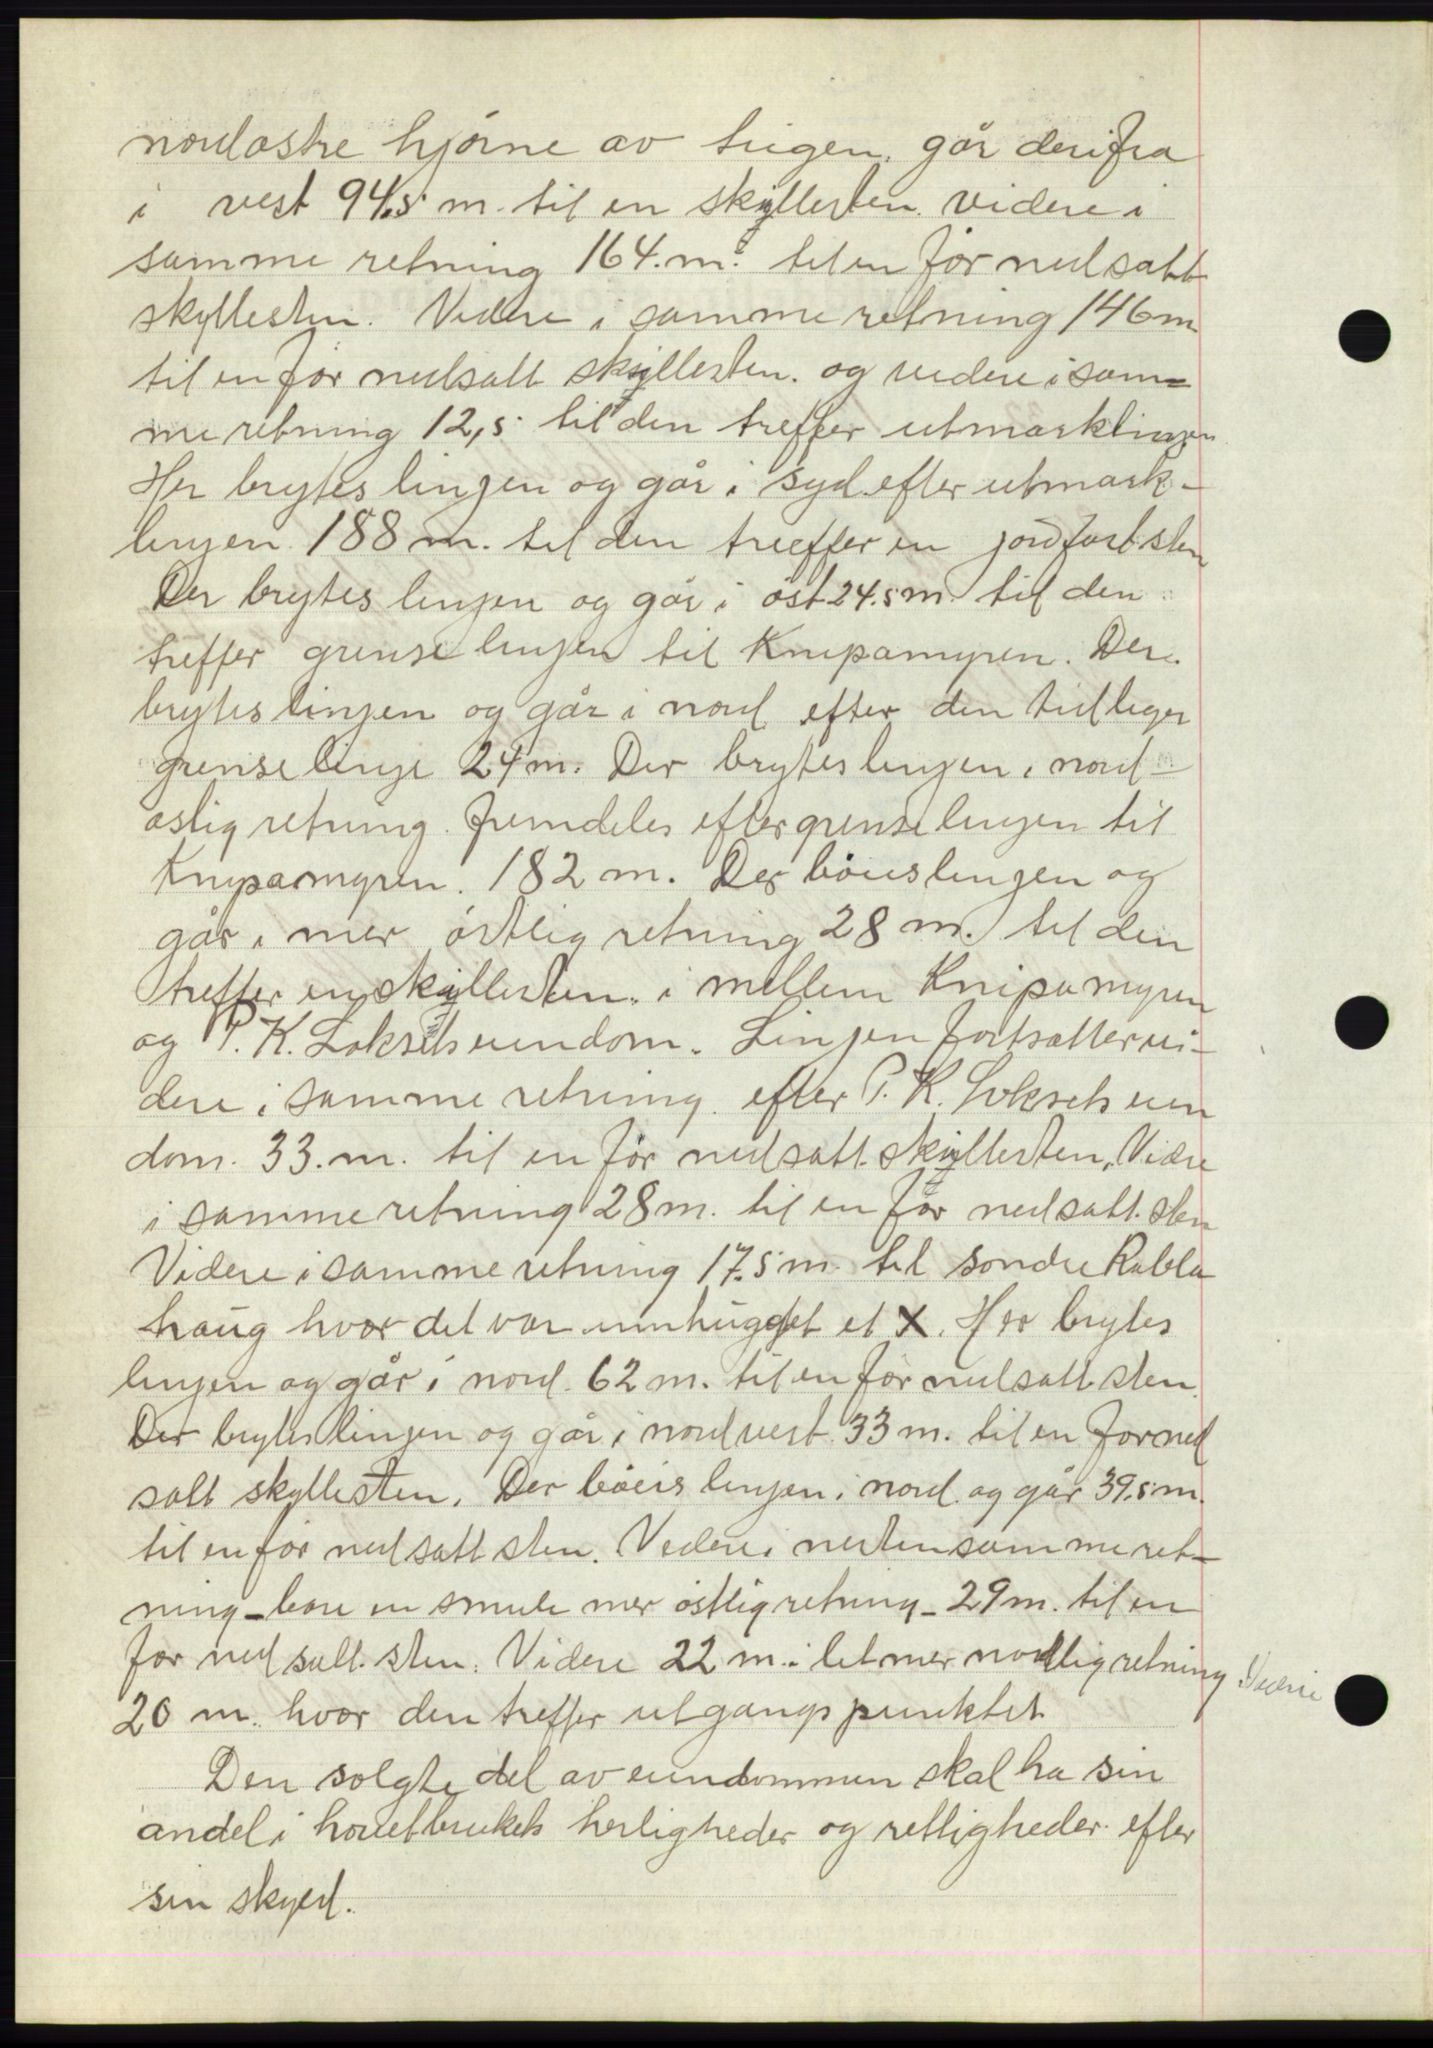 nordøstre hjørne av teigen, går derifra
i vest 94,5 m. til en skyllesten videre i
samme retning 164. m. til en før nedsatt
skyllesten. Videre i samme retning 146 m
til en før nedsatt skyllesten. og videre i sam=
me retning 12,5 til den treffer utmarklinjen.
Her brytes linjen og går i syd efter utmark-
linjen 188 m. til den treeffer en jordfast sten
Der brytes linjen og går i øst 24.5 m. til den
treffer grense linjen til Knipamyren. Der.
brytes linjen og går i nord efter den tidliger
grense linje 24 m. Der brytes linjen i nord-
øslig retning. fremdeles efter grense linjen til
Knipamyren. 182 m. Der böies linjen og
går i mer östlig retning 28 m. til den
treffer en skyllesten. i mellem Knipamyren
og P. K. Loksets eiendom. Linjen fortsetter vi-
dere i samme retning. efter P. K. Loksets eien
dom. 33. m. til en før nedsatt skyllesten. Videre
i samme retning 28 m. til en før nedsatt sten
Videre i samme retning 17.5 m. til sondre Rabba
haug hvor det var innhugget et X. Her brytes
linjen og går i nord. 62 m. til en før nedsatt sten.
Der brytes linjen og går i nordvest 33 m. til en for ned
satt skyllesten. Der böies linjen i nord og går 39,5 m.
til en før nedsatt sten. Videre i nesten samme ret-
ning - bare en smule mer östlig retning - 29 m. til en
før nedsatt sten. Videre 22 m. i let mer nordlig retning Videre
20 m. hvor den treffer utgangspunktet
Den solgte del av eiendommen skal ha sin
andel i hovetbrukets herligheder og rettigheder efter
sin skyld.